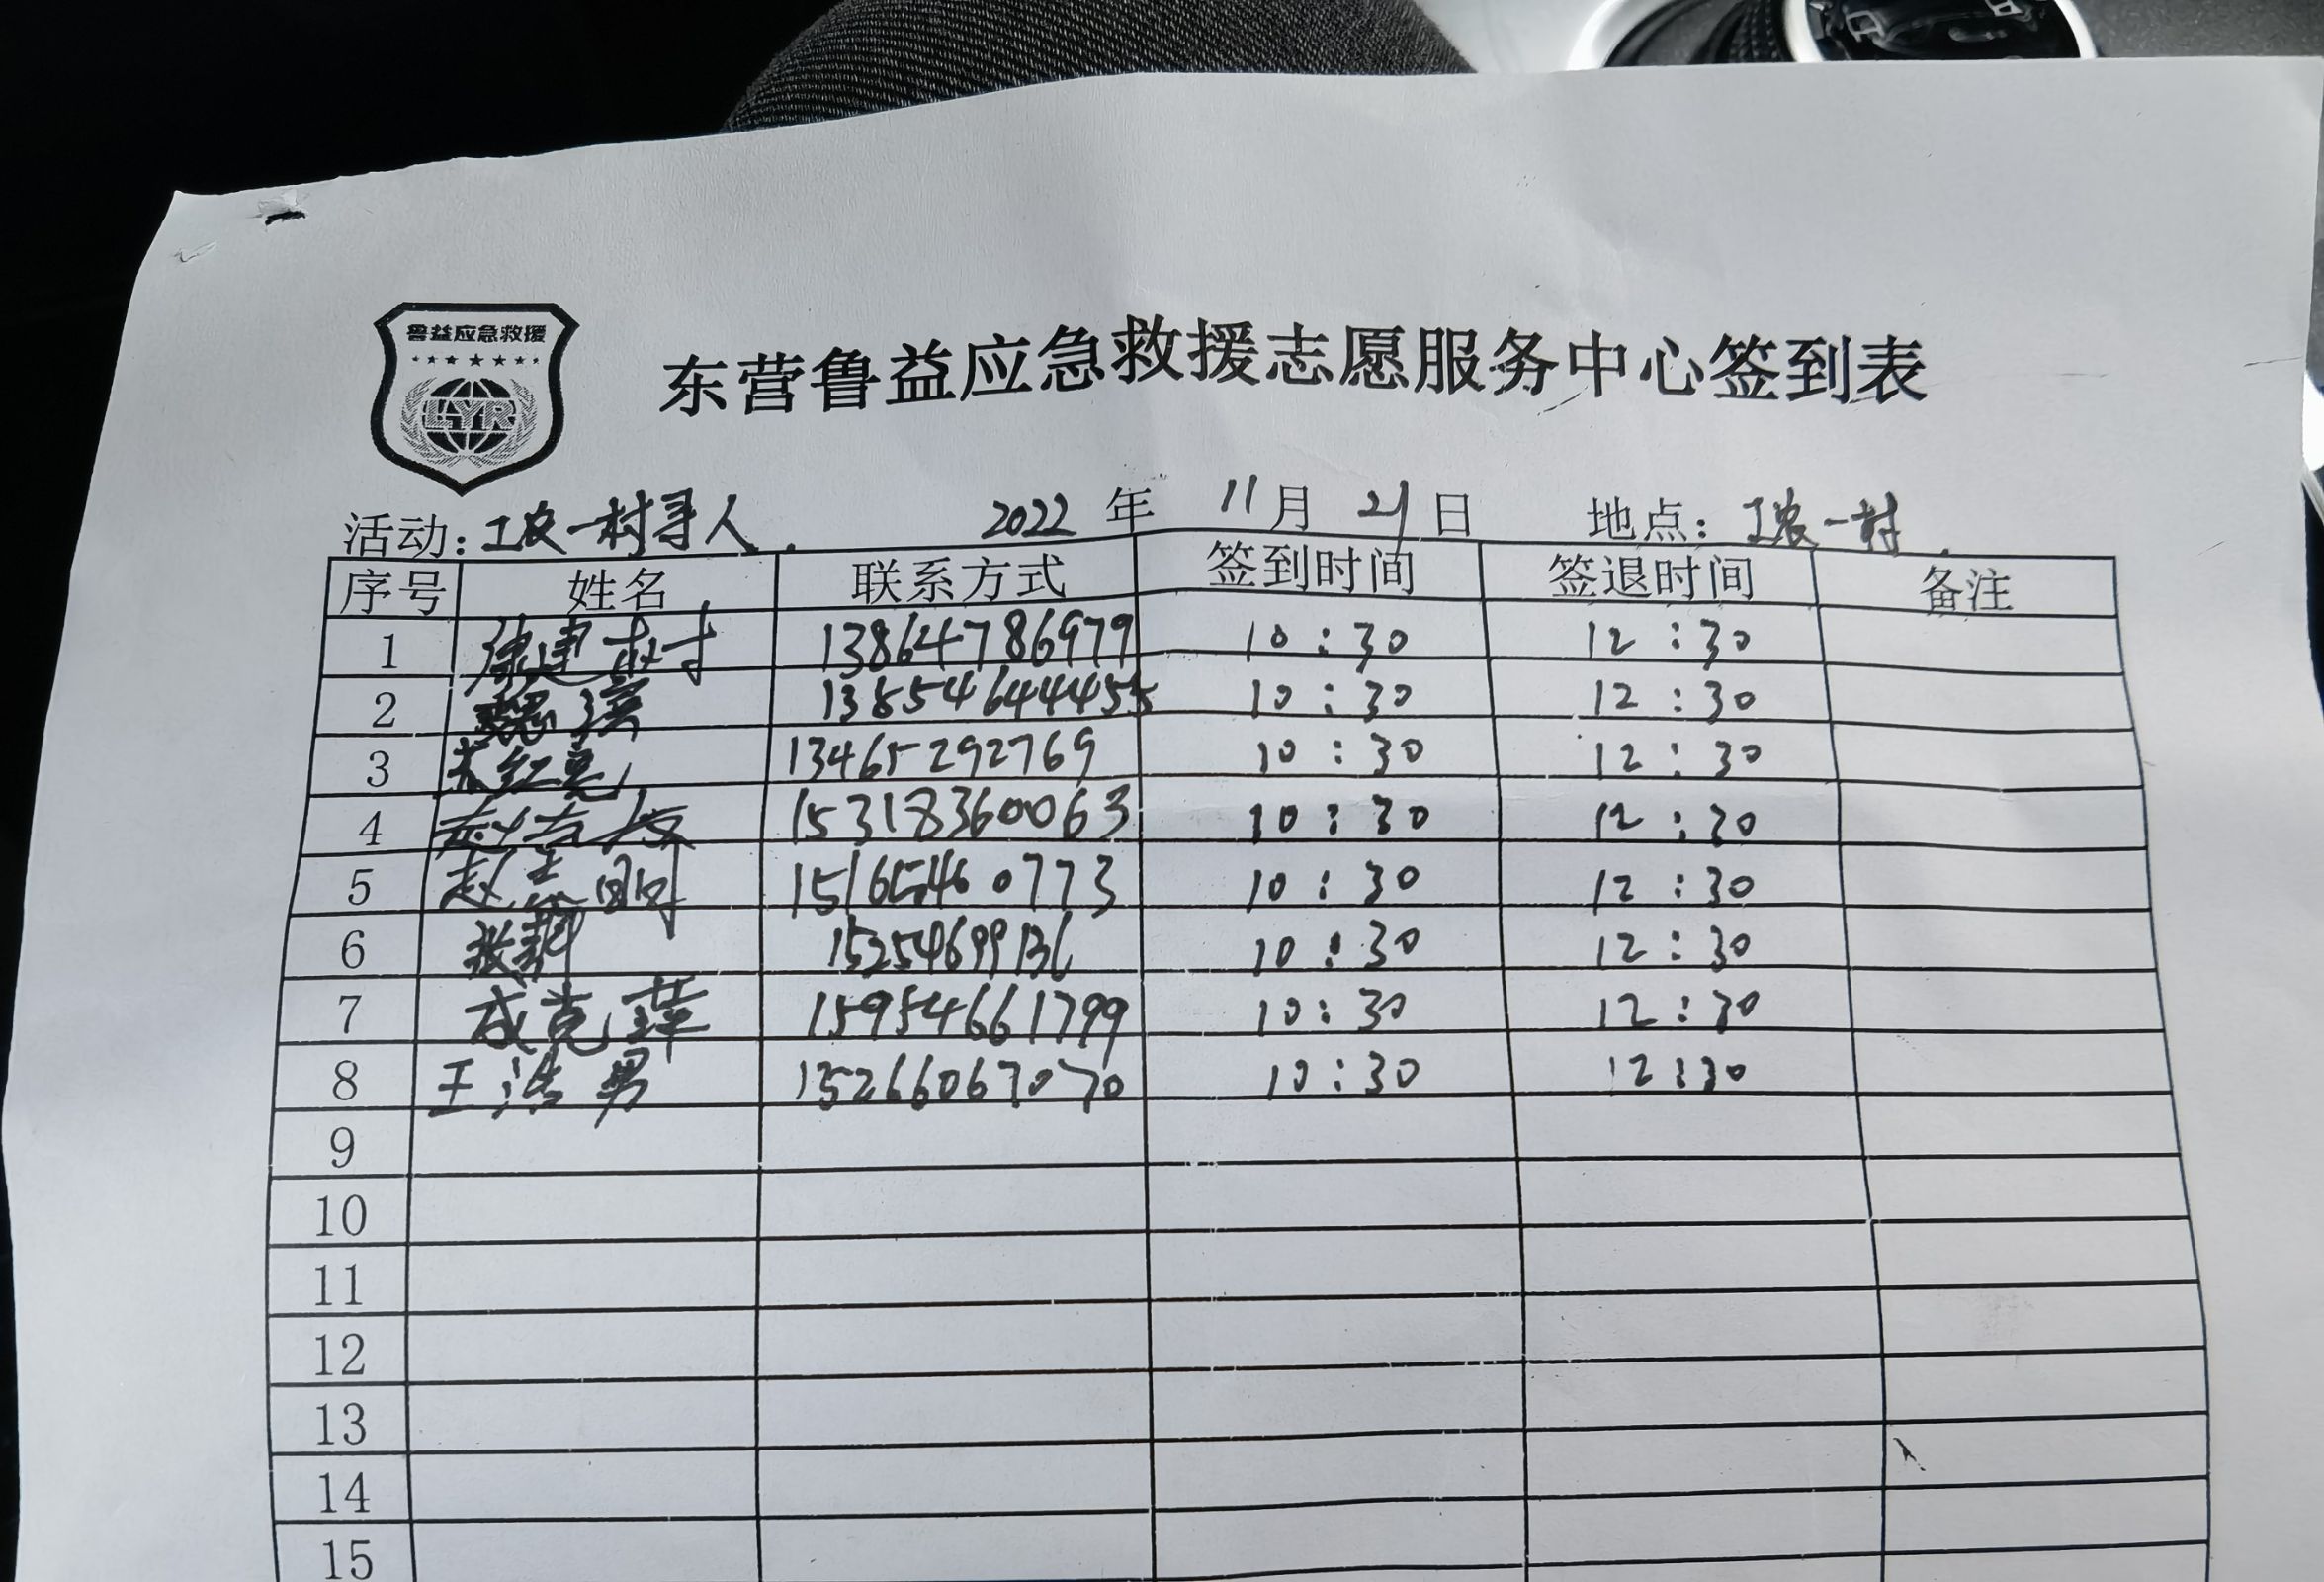 鲁益应急救援
LYR
东营鲁益应急救援志愿服务中心签到表
活动：工农一村寻人. 2022 年 11 月 21 日 地点：工农一村.
序号 姓名 联系方式 签到时间 签退时间 备注
1 徐建村 13864786979 10:30 12:30
2 13854644455 10:30 12:30
3 红亮 13465292769 10:30 12:30
4 赵吉 15318360063 10:30 12:30
5 赵 明 15165460773 10:30 12:30
6 15254699136 10:30 12:30
7 成克 15954661799 10:30 12:30
8 王浩男 15266067070 10:30 12:30
9
10
11
12
13
14
15